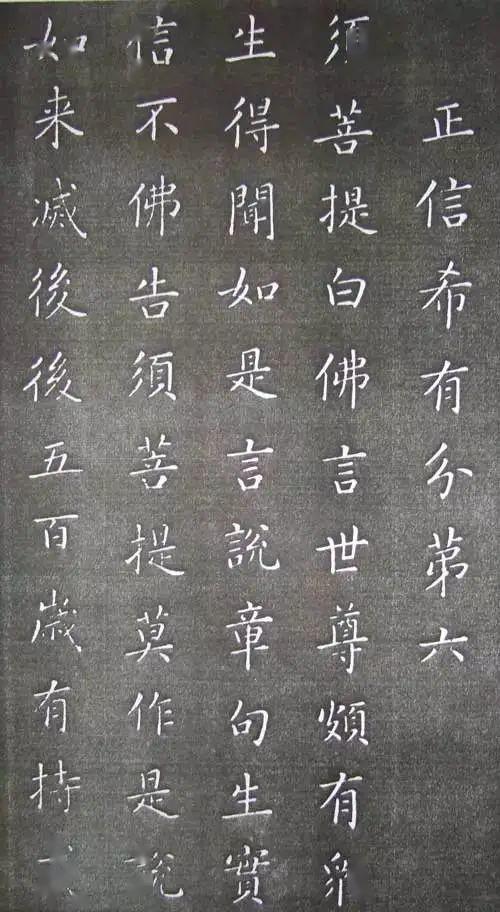 正信希有分第六
須菩提白佛言世尊頗有眾
生得聞如是言說章句生實
信不佛告須菩提莫作是說
如来滅後後五百歲有持